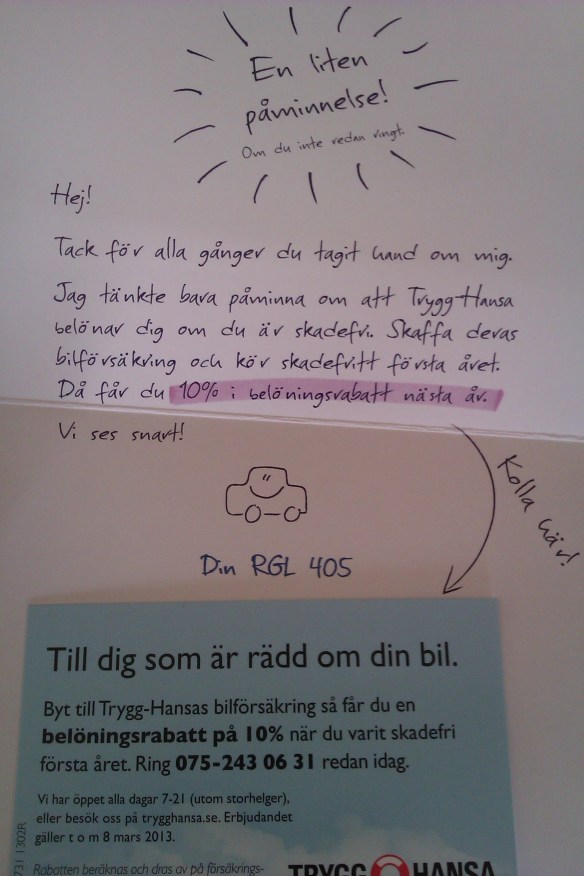 En liten
påminnelse!
Om du inte redan ringt.
Hej!
Tack för alla gånger du tagit hand om mig.
Jag tänkte bara påminna om att Trygg-Hansa
belönar dig om du är skadefri. Skaffa deras
bilförsäkring och kör skadefritt första året.
Då får du 10% i belöningsrabatt nästa år.
Vi ses snart!
Kolla här!
Din RGL 405
Till dig som är rädd om din bil.
Byt till Trygg-Hansas bilförsäkring så får du en
belöningsrabatt på 10% när du varit skadefri
första året. Ring 075-243 06 31 redan idag.
Vi har öppet alla dagar 7-21 (utom storhelger),
eller besök oss på trygghansa.se. Erbjudandet
gäller t o m 8 mars 2013.
Rabatten beräknas och dras av på försäkrings-
TRYGG HANSA
731 1302R